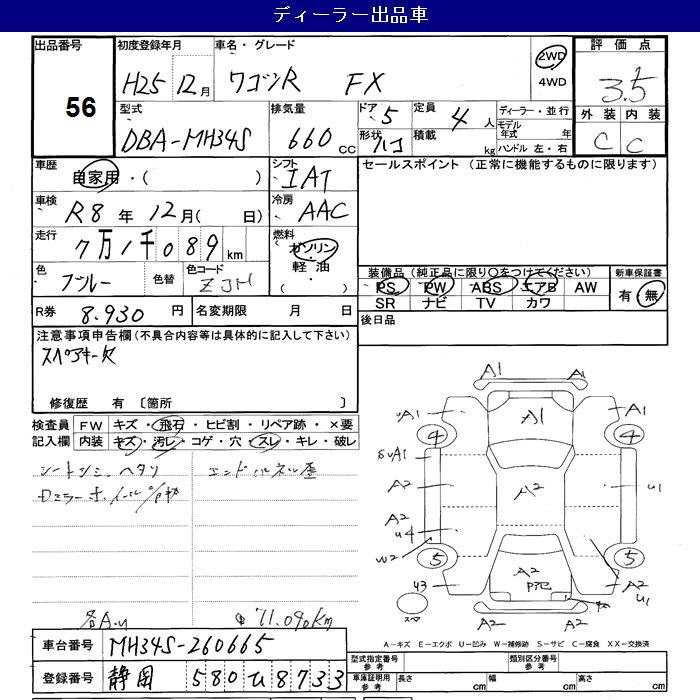 ディーラー出品車
出品番号 56
初度登録年月 H25 12月
車名・グレード ワゴンR FX
2WD
4WD
評価点 3.5
型式 DBA-MH34S
排気量 660cc
ドア 5
形状 ハコ
定員 4人
積載 kg
ディーラー・並行
モデル年式 年
ハンドル 左・右
外装 内装
C C
車歴 自家用・( )
シフト IAT
セールスポイント (正常に機能するものに限ります)
車検 R8年 12月( 日)
冷房 AAC
走行 7万1千089km
燃料 ガソリン
軽油
( )
色 ブルー 色替 色コード ZJH
装備品(純正品に限り○をつけてください)
新車保証書
PS PW ABS エアB AW
有・無
SR ナビ TV カワ
R券 8.930円
名変期限 月 日
後日品
注意事項申告欄(不具合内容等は具体的に記入して下さい)
スペアキー欠
修復歴 有〔箇所 〕
検査員記入欄
FW キズ・飛石・ヒビ割・リペア跡・×要
内装 キズ・汚レ・コゲ・穴・スレ・キレ・破レ
シートシミ、ヘタリ
71.090km
車台番号 MH34S-260665
登録番号 静岡 580 ひ 8733
A1 A1
A1 A1 A1
4 4
A2 A2 U1
A2
W2
5 5
U3 A2 A2
U1
スペア
A2 A2
A-キズ E-エクボ U-凹み W-補修跡 S-サビ C-腐食 XX-交換済
型式指定番号 参考
類別区分番号 参考
車庫証明用 参考
長さ cm 幅 cm 高さ cm